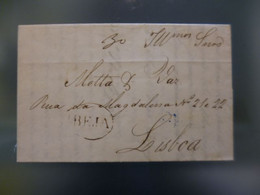 Ill.mos Snrs
Motta & Vaz
Rua da Magdalena Nº 21 e 22
BEJA
Lisboa